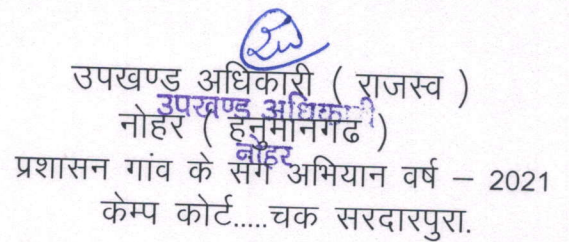 उपखण्ड अधिकारी ( राजस्व )
उपखण्ड अधिकारी
नोहर ( हनुमानगढ )
नोहर
प्रशासन गांव के संग अभियान वर्ष – 2021
केम्प कोर्ट.....चक सरदारपुरा.